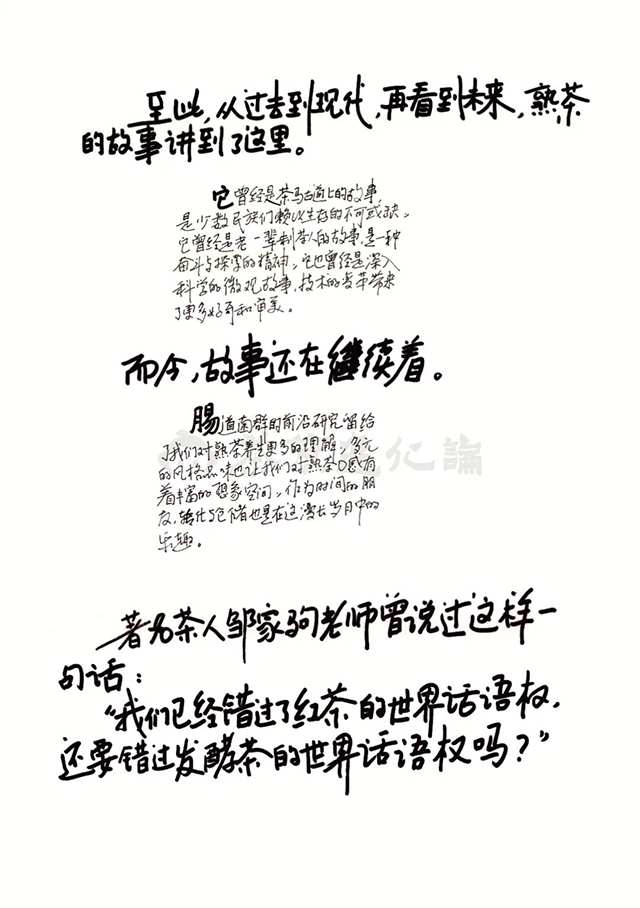 至此，从过去到现代，再看到未来，熟茶
的故事讲到了这里。
它曾经是茶马古道上的故事，
是少数民族们赖以生存的不可或缺。
它曾经是老一辈制茶人的故事，是一种
奋斗与探索的精神，它也曾经是深入
科学的微观故事，技术的变革带来
了更多好奇和审美。
而今，故事还在继续着。
肠道菌群的前沿研究留给
了我们对熟茶养生更多的理解，多元
的风格品味也让我们对熟茶口感有
着丰富的想象空间，作为时间的朋
友，转化与仓储也是在这漫长岁月中的
乐趣。
化論
著名茶人邹家驹老师曾说过这样一
句话：
“我们已经错过了红茶的世界话语权，
还要错过发酵茶的世界话语权吗？”